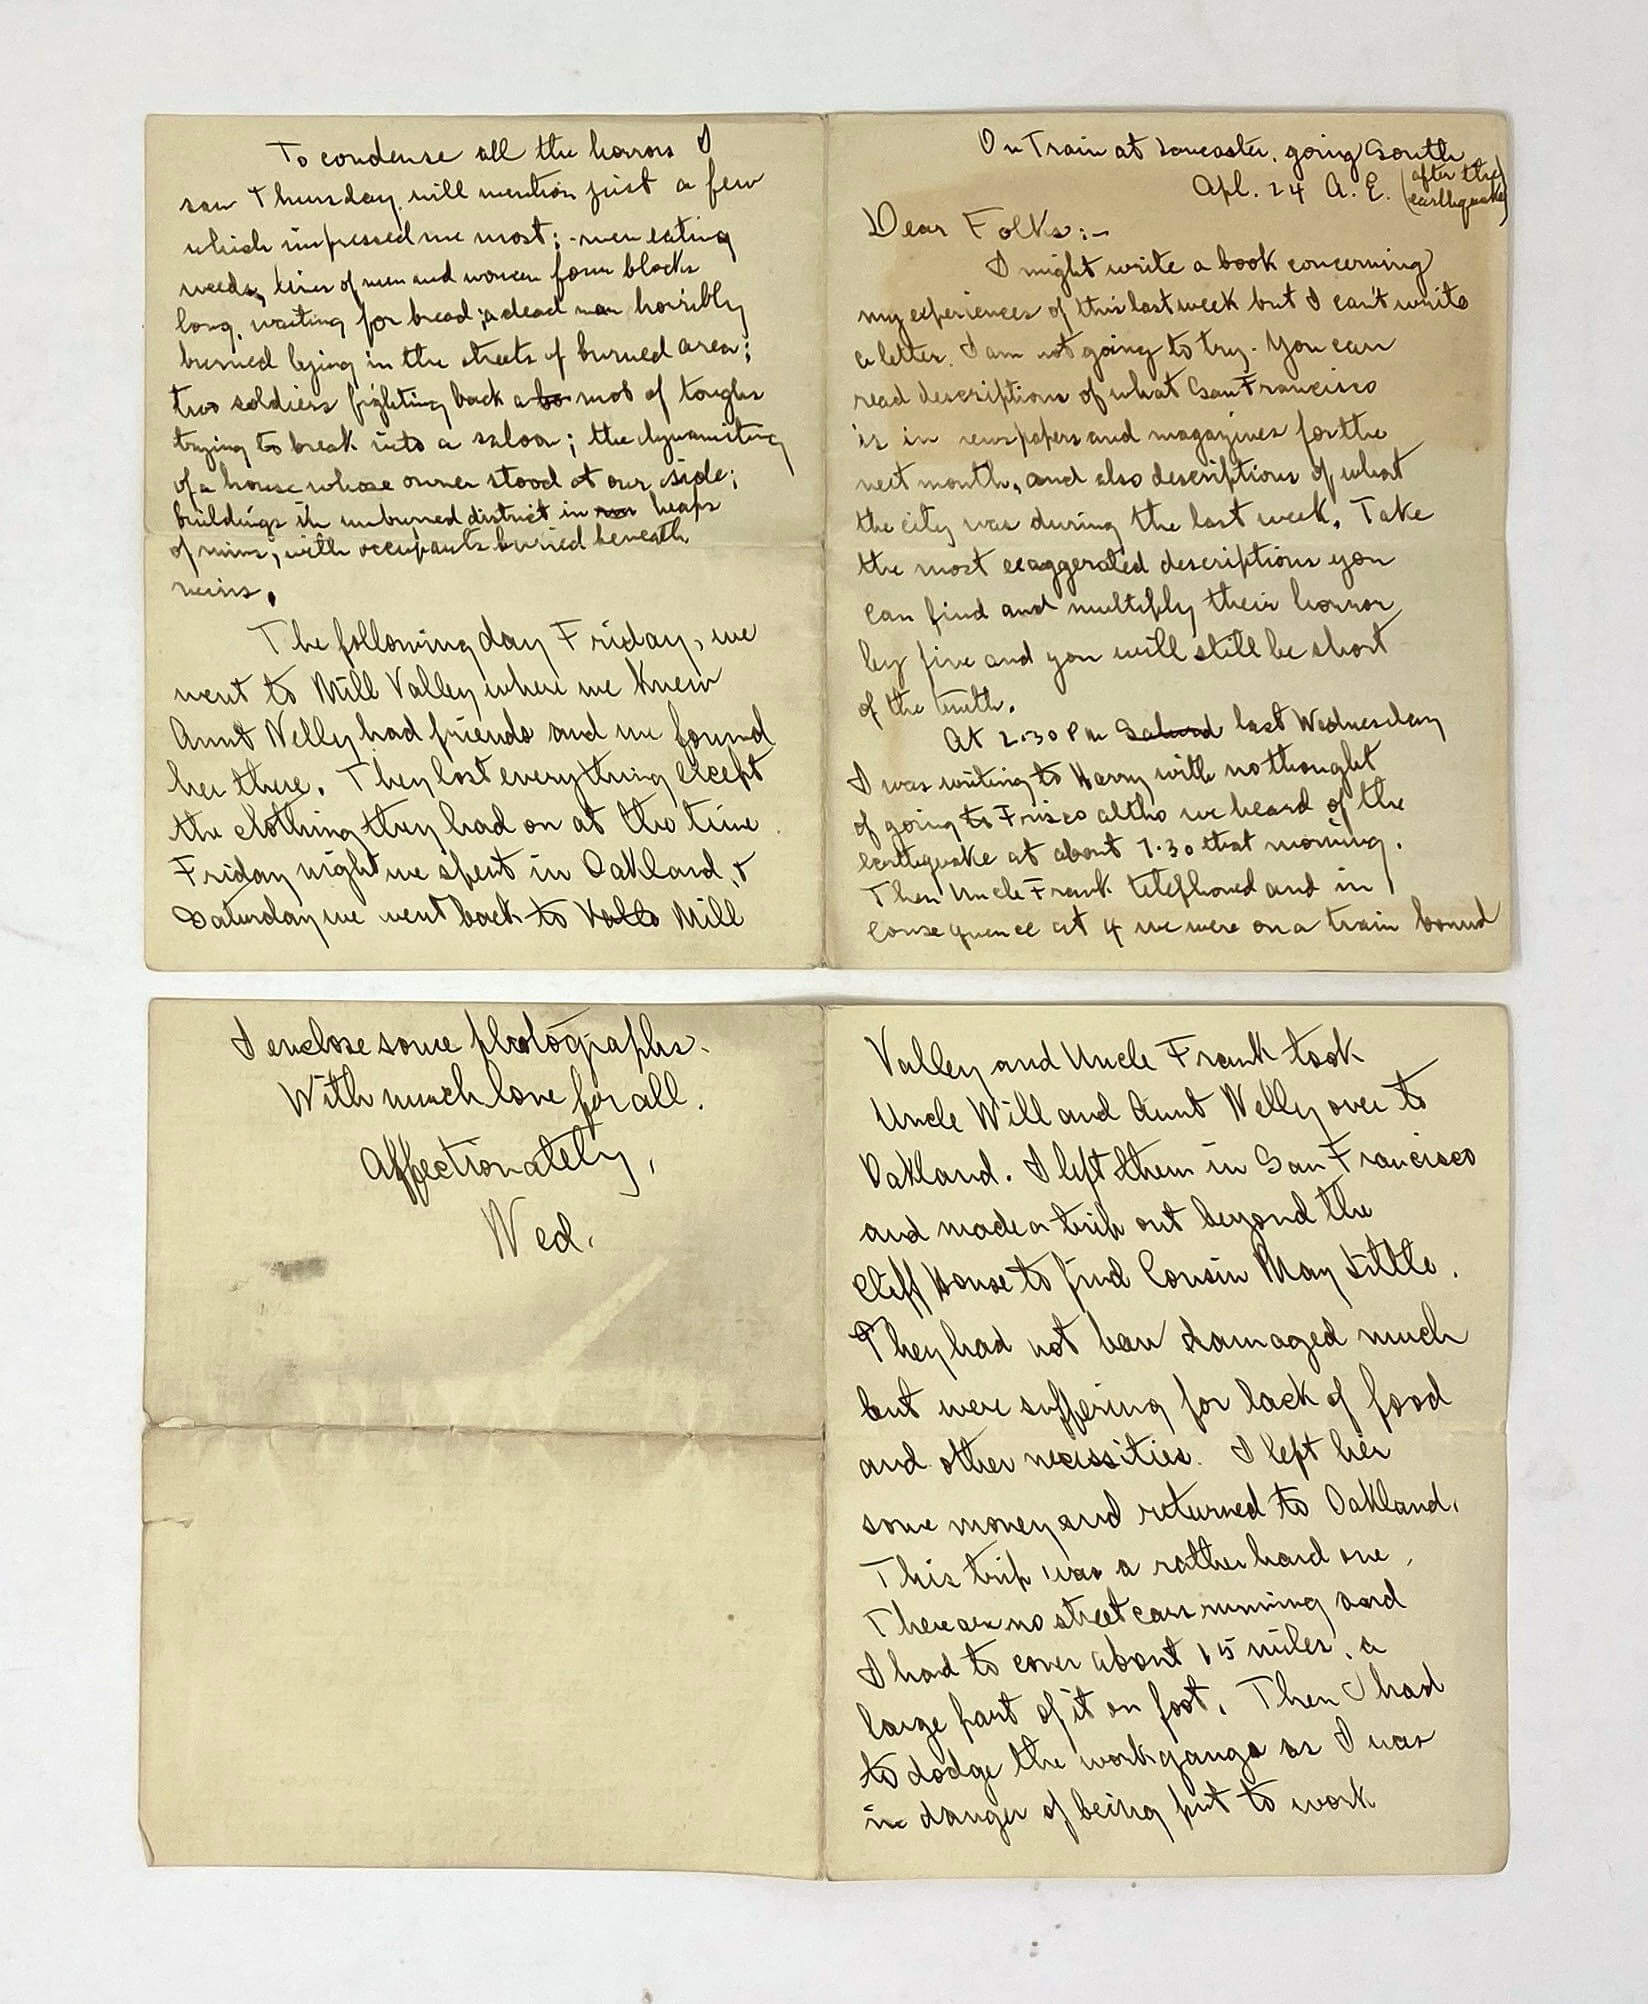 On Train at Lancaster, going South
Apl. 24 A. E. (after the earthquake)
Dear Folks:-
I might write a book concerning
my experiences of this last week but I can't write
a letter. I am not going to try. You can
read descriptions of what San Francisco
is in newspapers and magazines for the
next month, and also descriptions of what
the city was during the last week. Take
the most exaggerated descriptions you
can find and multiply their horror
by five and you will still be short
of the truth.
At 2.30 PM Saturd last Wednesday
I was writing to Harry with no thought
of going to Frisco altho we heard of the
earthquake at about 7.30 that morning.
Then Uncle Frank telephoned and in
consequence at 4 we were on a train bound
To condense all the horrors I
saw Thursday will mention just a few
which impressed me most: - men eating
weeds, lines of men and women four blocks
long, waiting for bread; a dead man horribly
burned lying in the streets of burned area;
two soldiers fighting back a mob of toughs
trying to break into a saloon; the dynamiting
of a house whose owner stood at our side;
buildings in unburned district in heaps
of ruins, with occupants buried beneath
ruins.
The following day Friday, we
went to Mill Valley where we knew
Aunt Nelly had friends and we found
her there. They lost everything except
the clothing they had on at the time
Friday night we spent in Oakland, &
Saturday we went back to Valle Mill
Valley and Uncle Frank took
Uncle Will and Aunt Nelly over to
Oakland. I left them in San Francisco
and made a trip out beyond the
Cliff House to find Cousin May Little.
They had not been damaged much
but were suffering for lack of food
and other necessities. I left her
some money and returned to Oakland.
This trip was a rather hard one.
There are no street cars running and
I had to cover about 15 miles, a
large part of it on foot. Then I had
to dodge the work gangs as I was
in danger of being put to work
I enclose some photographs.
With much love for all.
Affectionately,
Ned.